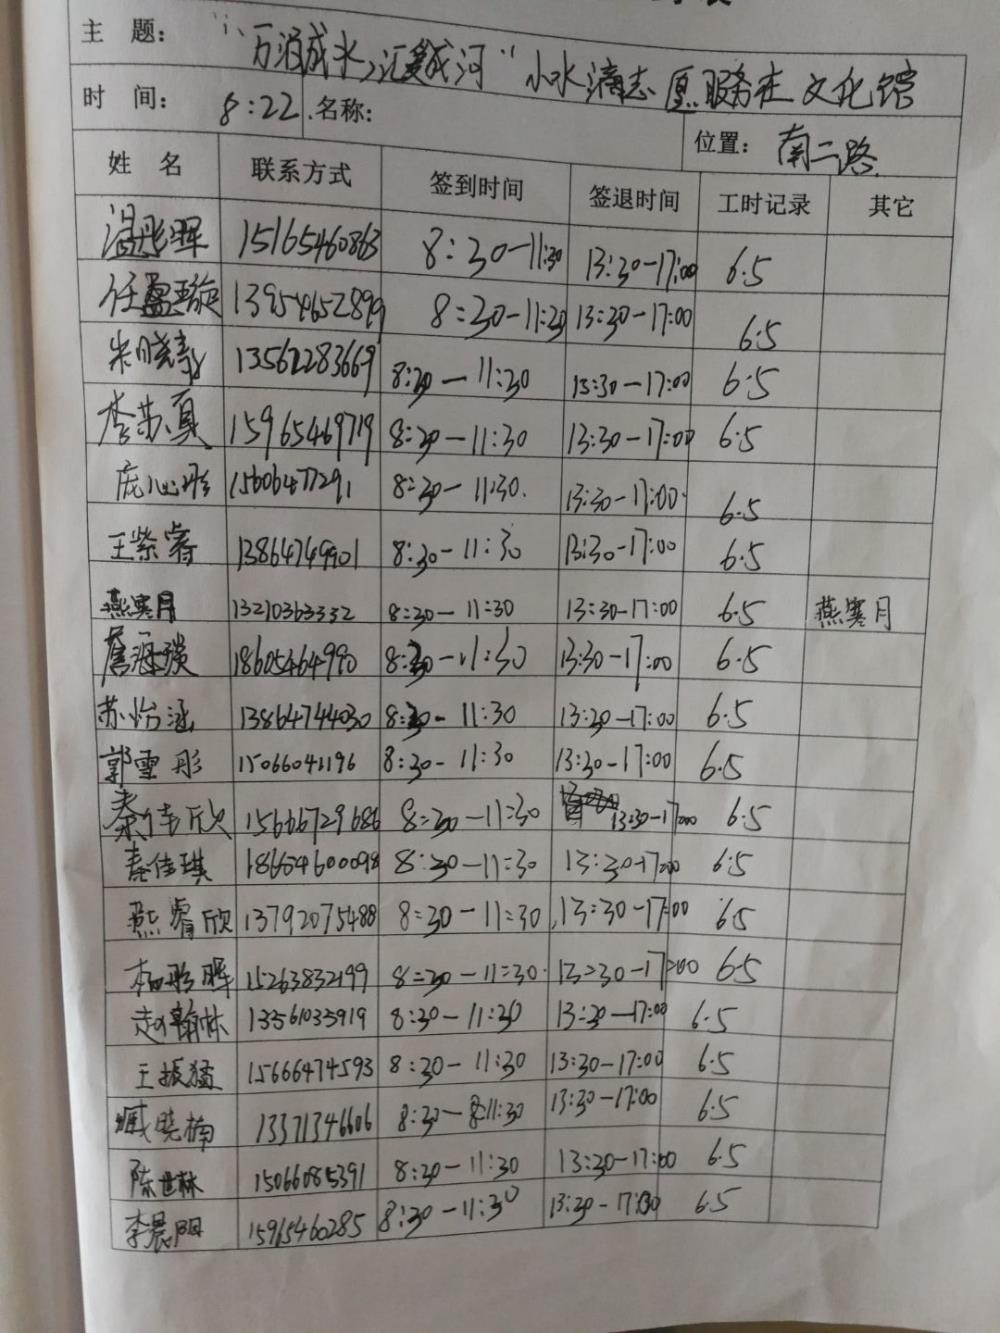 主 题： "万泊成水，汇爱成河"小水滴志愿服务在文化馆
时 间： 8:22 名称： 位置： 南二路
姓 名 联系方式 签到时间 签退时间 工时记录 其它
温彤晖 15165460863 8:30-11:30 13:30-17:00 6.5
任盈璇 13954652899 8:30-11:30 13:30-17:00 6.5
朱晓 13562283669 8:30-11:30 13:30-17:00 6.5
李苏真 15965469719 8:30-11:30 13:30-17:00 6.5
庞心彤 15606477291 8:30-11:30. 13:30-17:00. 6.5
王紫睿 13864749901 8:30-11:30 13:30-17:00 6.5
燕寒月 13210363332 8:30-11:30 13:30-17:00 6.5 燕寒月
18605464990 8:30-11:30 13:30-17:00 6.5
苏怡涵 13864744030 8:30-11:30 13:30-17:00 6.5
郭雪彤 15066041196 8:30-11:30 13:30-17:00 6.5
秦佳欣 15666729686 8:30-11:30 13:30-17:00 6.5
秦佳琪 186654600098 8:30-11:30 13:30-17:00 6.5
燕睿欣 13792075488 8:30-11:30 13:30-17:00 6.5
柏彤晖 15263832199 8:30-11:30. 13:30-17:00 6.5
赵翰林 13561033919 8:30-11:30 13:30-17:00 6.5
王振猛 15666474593 8:30-11:30 13:30-17:00 6.5
臧晓楠 13371346606 8:30-8:11:30 13:30-17:00 6.5
陈世林 15066085391 8:30-11:30 13:30-17:00 6.5
李晨阳 15915460285 8:30-11:30 13:30-17:00 6.5